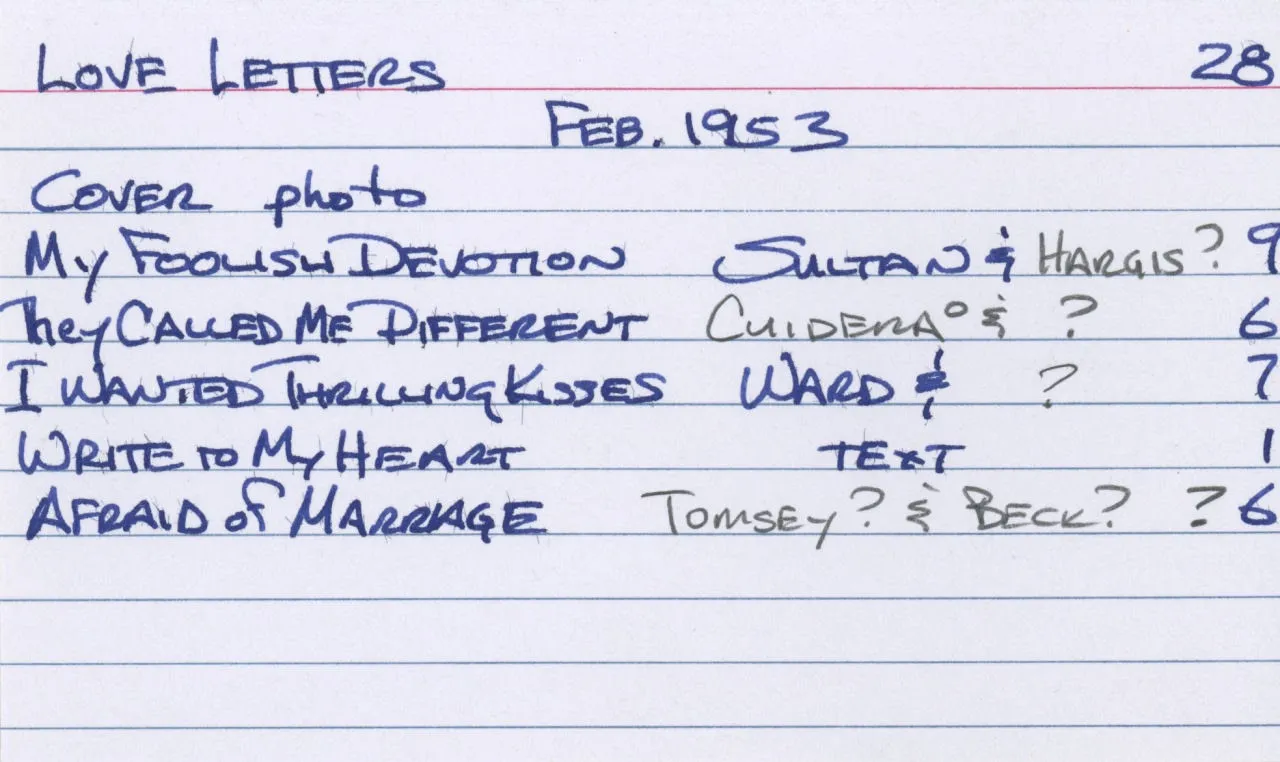 LOVE LETTERS 28
FEB. 1953
COVER photo
My FOOLISH DEVOTION SULTAN & HARGIS? 9
They CALLED ME DIFFERENT CUIDERA° & ? 6
I WANTED THRILLING KISSES WARD & ? 7
WRITE TO My HEART TEXT 1
AFRAID of MARRIAGE TOMSEY? & BECK? ? 6